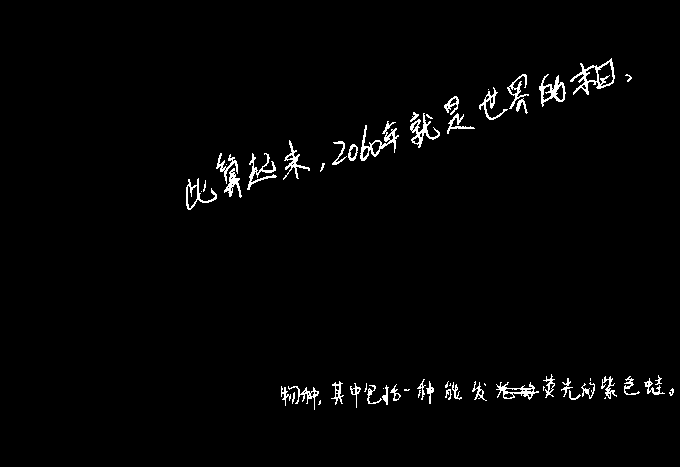 比算起来,2060年就是世界的末日。
物种,其中包括一种能发荧光的紫色蛙。